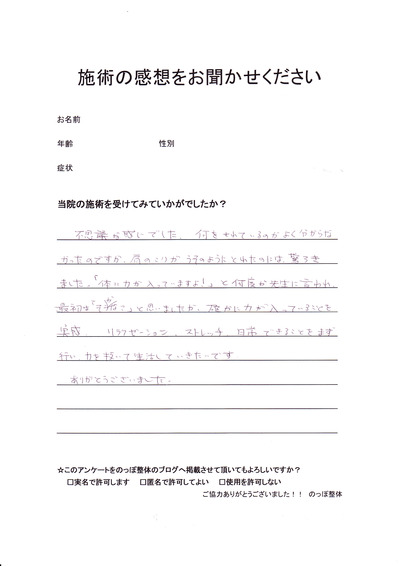 施術の感想をお聞かせください
お名前
年齢 性別
症状
当院の施術を受けてみていかがでしたか？
不思議な感じでした。何をされているのかよく分からな
かったのですが、肩のこりがうそのようにとれたのには、驚きき
ました。「体に力が入ってますよ！」と何度か先生に言われ、
最初は「」と思いましたが、確かに力が入っていることを
実感。リラクゼーション、ストレッチ、日常できることをまず
行い、力を抜いて生活していきたいです
ありがとうございました。
☆このアンケートをのっぽ整体のブログへ掲載させて頂いてもよろしいですか？
□実名で許可します □匿名で許可してよい □使用を許可しない
ご協力ありがとうございました！！ のっぽ整体